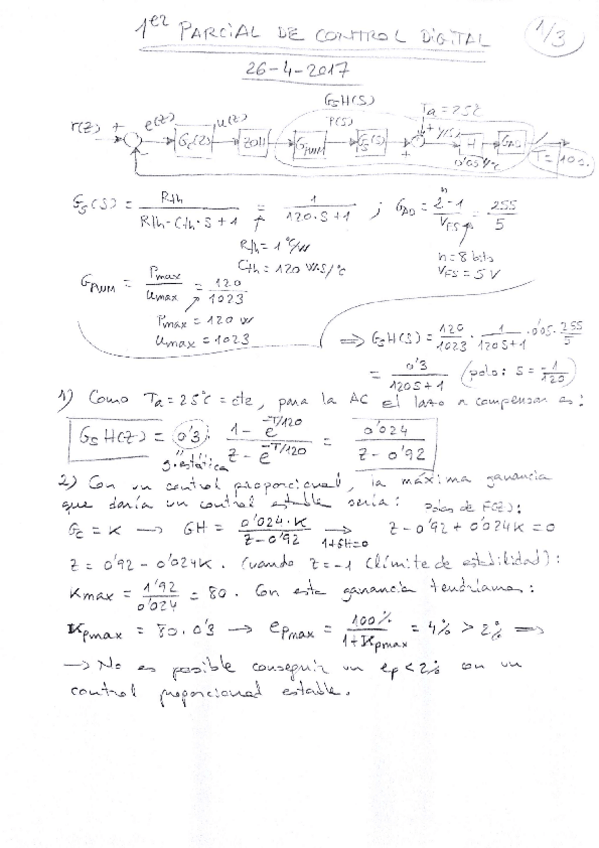 1er PARCIAL DE CONTROL DIGITAL
1/3
26-4-2017
GsH(S)
r(z) + e(z) Gc(z) u(z) ZOH GPWM P(s) Gs(s) Ta=25º + + y(s) H 0'05V/ºC GAD T=10s.
Gs(s) = Rth / Rth·Cth·S+1 = 1 / 120·S+1 ; GAD = 2^n-1 / VFS = 255 / 5
Rth = 1 ºC/W
Cth = 120 W·S/ºC
n = 8 bits
VFS = 5V
GPWM = Pmax / umax = 120 / 1023
Pmax = 120 W
umax = 1023
⟹ GsH(s) = 120/1023 · 1/120S+1 · 0'05 · 255/5
= 0'3 / 120S+1 (polo: S = -1/120)
1) Como Ta = 25ºC = cte, para la AC el lazo a compensar es:
GsH(z) = 0'3 · 1-e^-T/120 / z-e^-T/120 = 0'024 / z-0'92
g. estática
2) Con un control proporcional, la máxima ganancia
que daría un control estable sería: Polos de F(z):
Gc = K → GH = 0'024·K / z-0'92 → 1+GH=0 z-0'92+0'024K=0
z = 0'92-0'024K. Cuando z=-1 (límite de estabilidad):
Kmax = 1'92 / 0'024 = 80. Con esta ganancia tendríamos:
Kpmax = 80·0'3 → epmax = 100% / 1+Kpmax = 4% > 2% ⟹
→ No es posible conseguir un ep<2% con un
control proporcional estable.